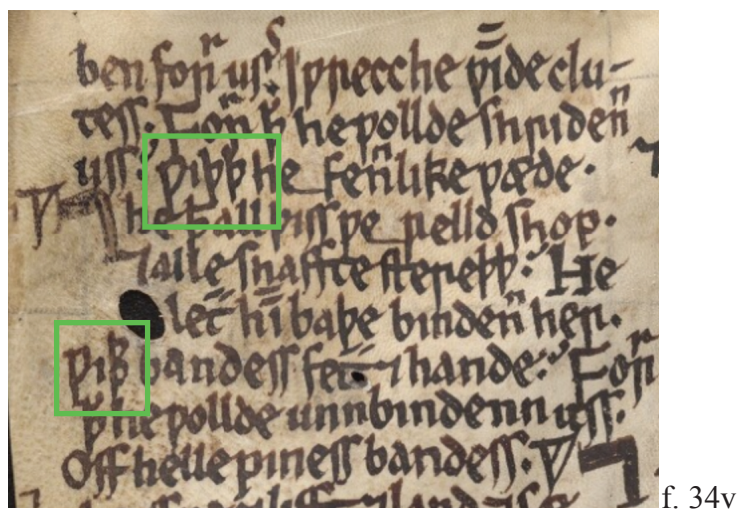 ben forr uss. I ƿrecche ƿīde clu-
tess. Forr ꝥ he ƿollde shridenn
uss. ƿiþþ he feñlike ƿæde.
⁊ he ꝥ all þiss ƿe relld shop.
⁊ alle shaffte stereþþ. He
let̄ hı̄m baþe bindenn her.
ƿiþ bandess fet̄ ⁊ hande. Forr
ꝥ he ƿollde unnbindenn uss.
Off helle piness bandess.
f. 34v